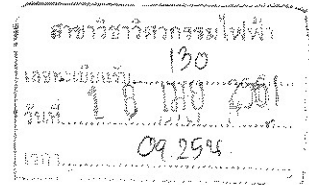 สาขาวิชาวิศวกรรมไฟฟ้า
130
เลขทะเบียนรับ
วันที่ 1 8 เมย 2561
เวลา 09.25น.